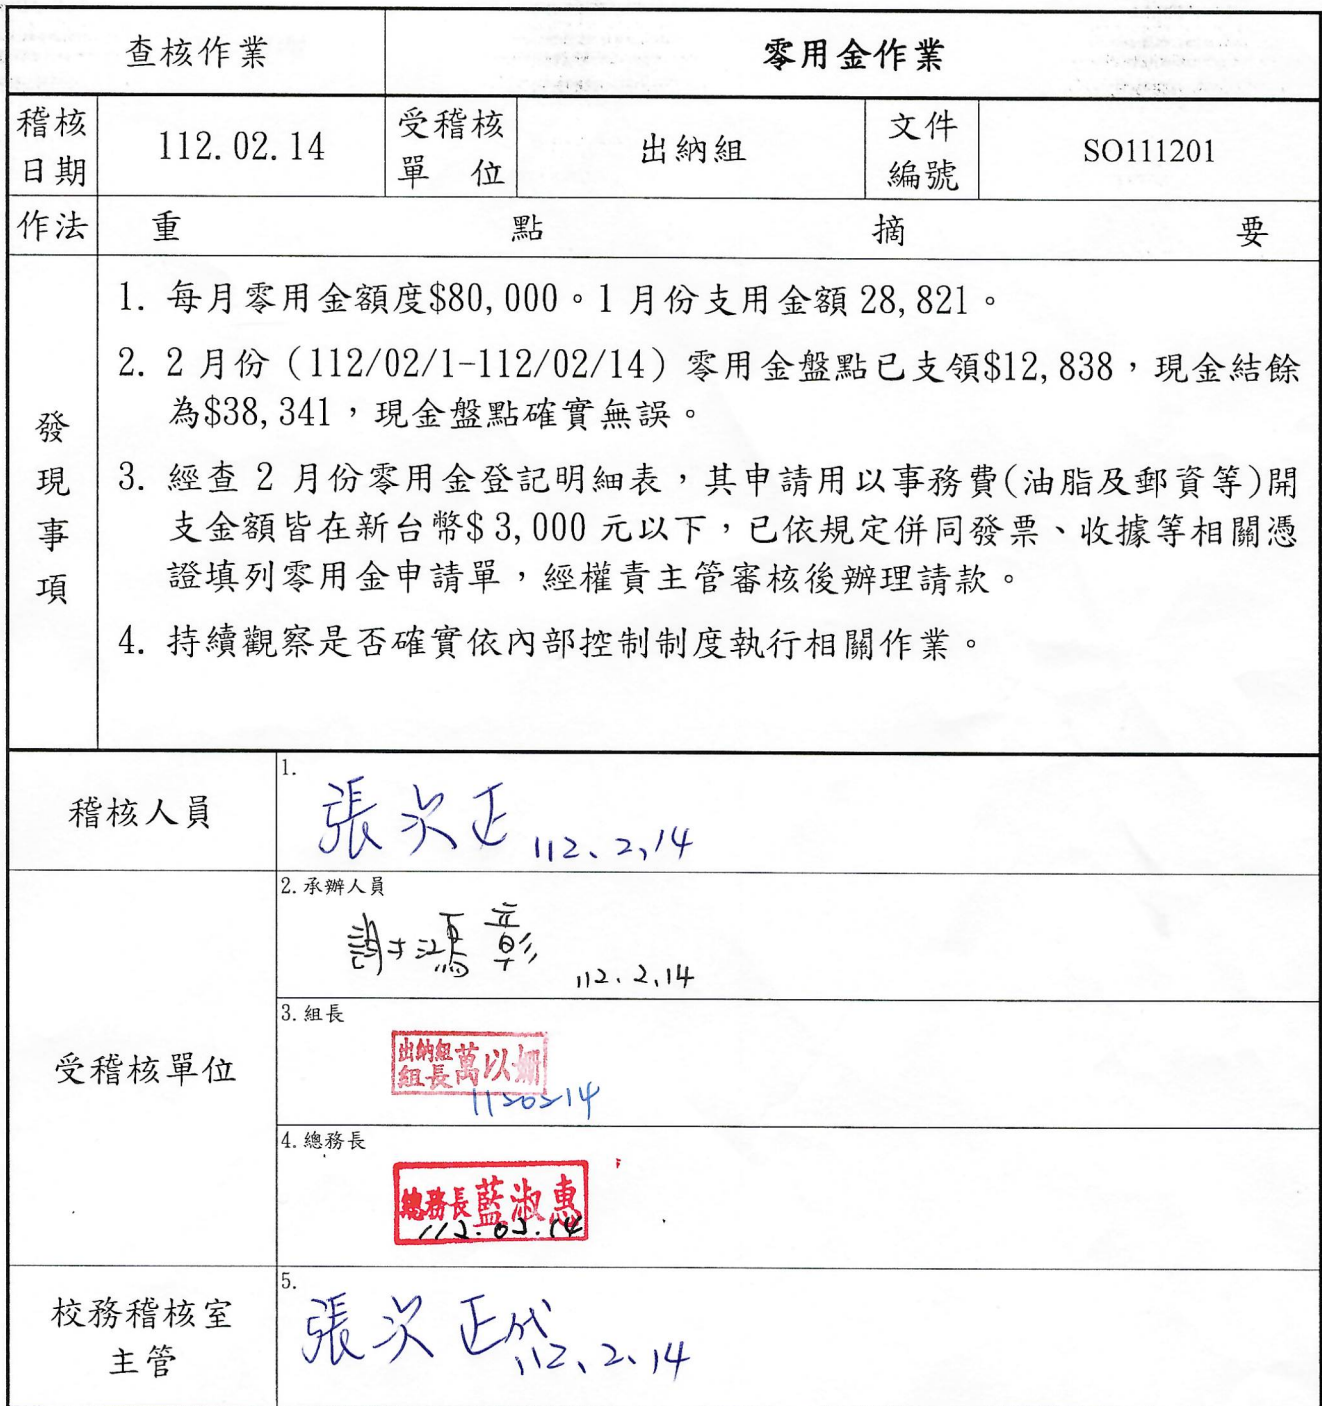 查核作業 零用金作業
稽核日期 112.02.14 受稽核單位 出納組 文件編號 SO111201
作法 重點摘要
發現事項
1. 每月零用金額度$80,000。1月份支用金額28,821。
2. 2月份（112/02/1-112/02/14）零用金盤點已支領$12,838，現金結餘
為$38,341，現金盤點確實無誤。
3. 經查 2 月份零用金登記明細表，其申請用以事務費(油脂及郵資等)開
支金額皆在新台幣$3,000元以下，已依規定併同發票、收據等相關憑
證填列零用金申請單，經權責主管審核後辦理請款。
4. 持續觀察是否確實依內部控制制度執行相關作業。
稽核人員
1.
張次正 112、2,14
受稽核單位
2.承辦人員
謝鴻彰 112.2.14
3.組長
出納組組長萬以姍
1120214
4.總務長
總務長藍淑惠
112.02.14
校務稽核室主管
5.
張次正代 112、2、14